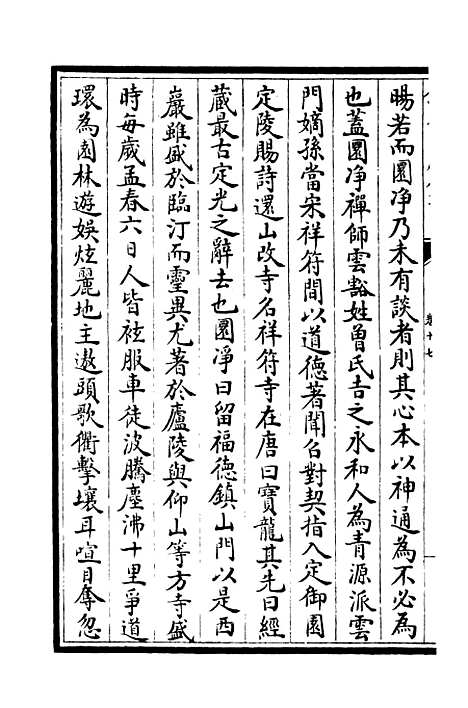 暘若而圓净乃未有談者則其心本以神通為不必為
也蓋圓净禪師雲豁姓曾氏吉之永和人為青源派雲
門嫡孫當宋祥符間以道德著聞召對契指入定御園
定陵賜詩還山改寺名祥符寺在唐曰寳龍其先曰經
藏最古定光之辭去也圓淨曰留福德鎮山門以是西
巖雖盛於臨汀而靈異尤著於廬陵與仰山等方寺盛
時每歲孟春六日人皆袨服車徒波騰塵沸十里爭道
環為園林遊娛炫麗地主遨頭歌衢擊壤耳喧目奪忽
卷十七